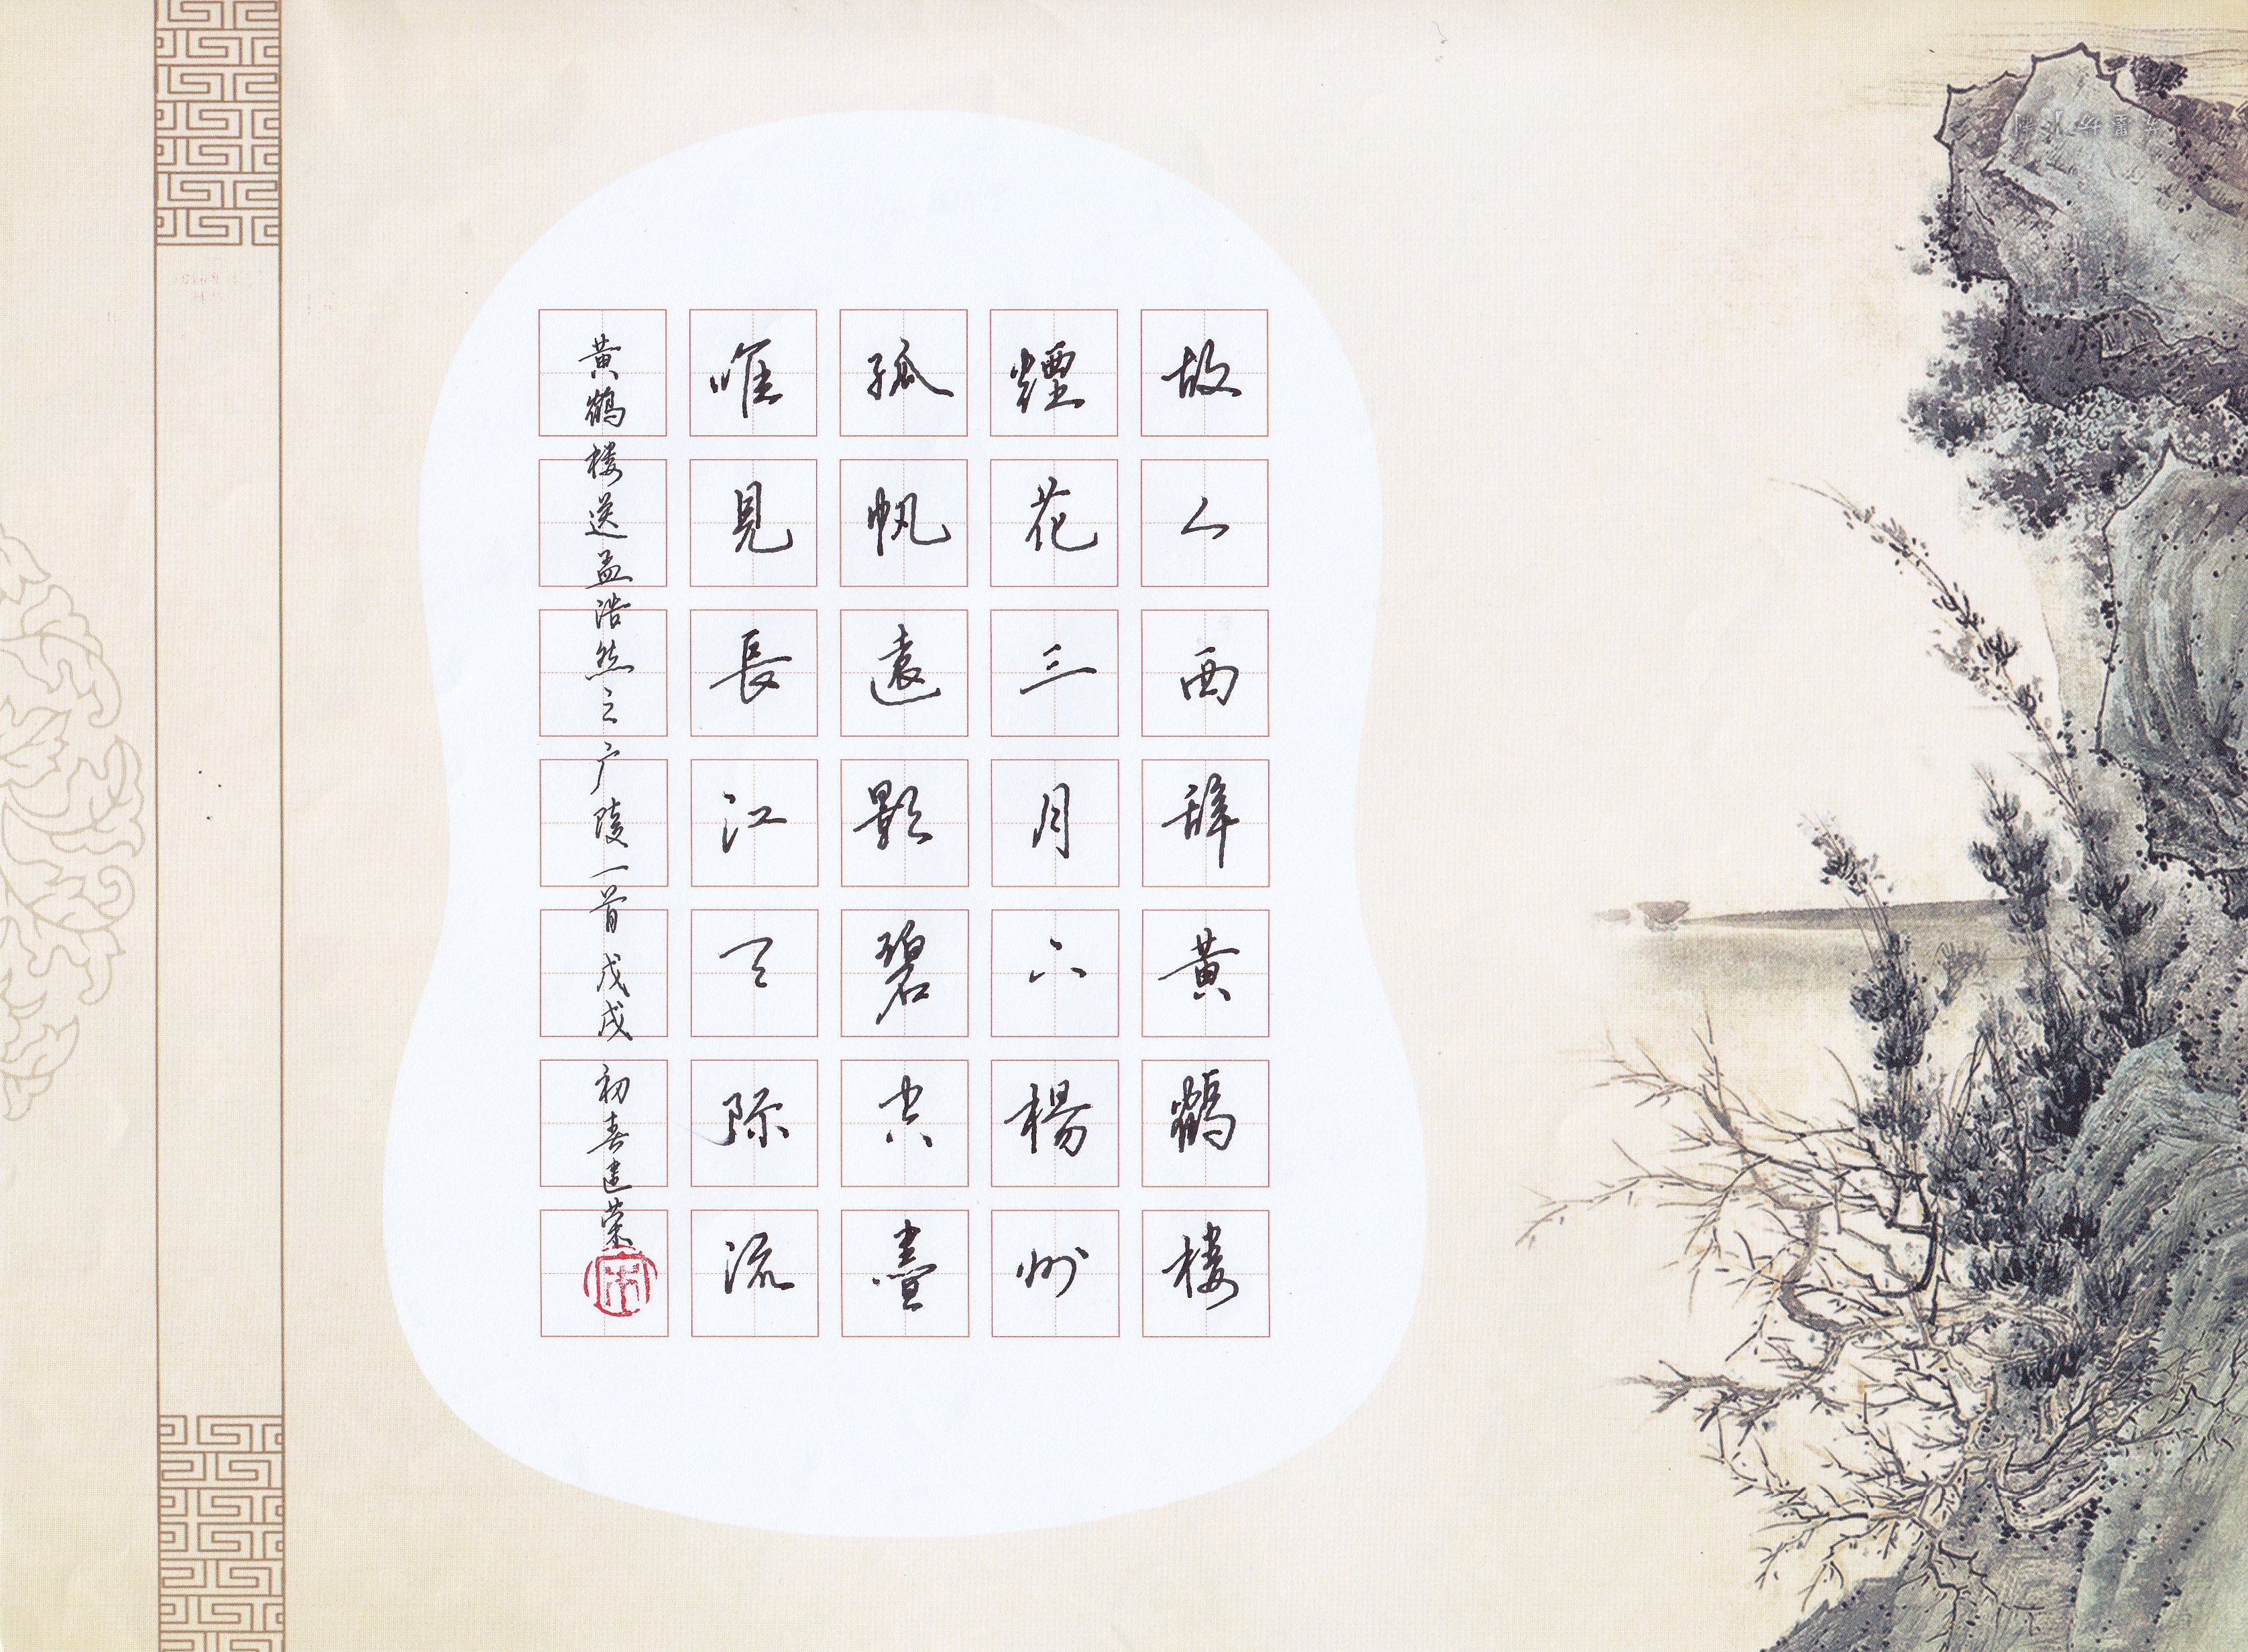 故人西辞黄鶴楼
煙花三月下楊州
孤帆遠影碧空盡
唯見長江天際流
黄鶴楼送孟浩然之广陵一首 戊戌初春建荣